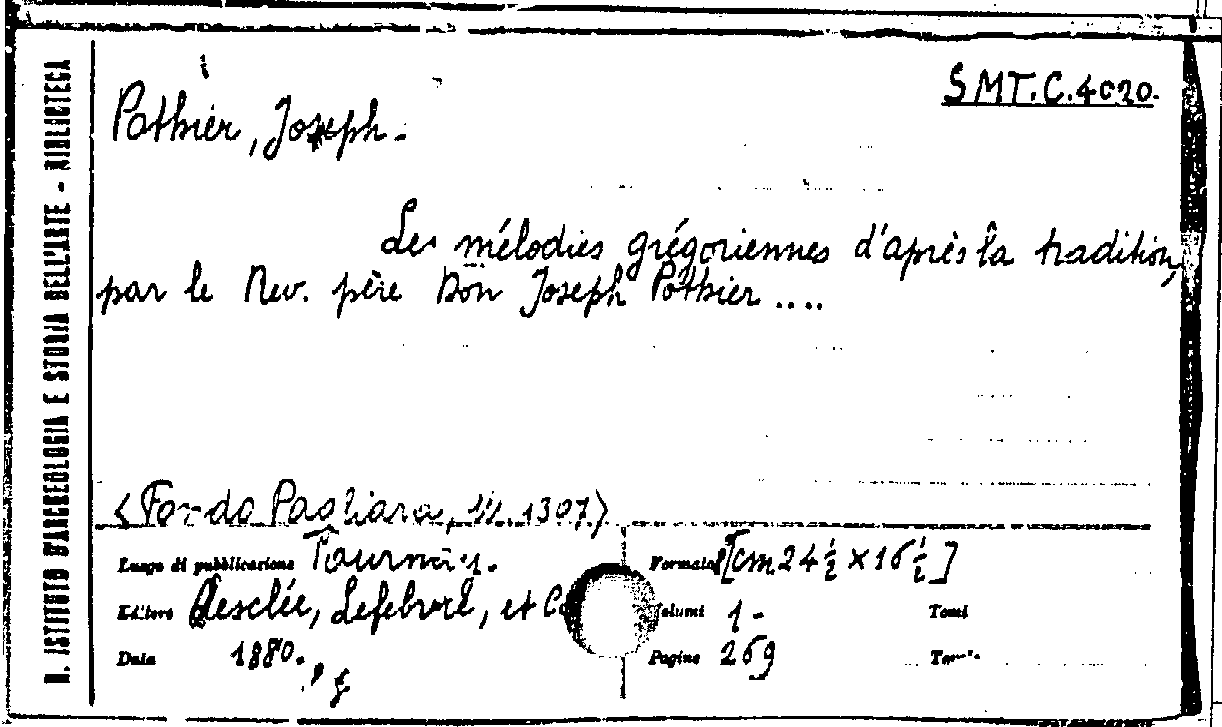 SMT.C.4020.
Pothier, Joseph.
Les mélodies grégoriennes d'après la tradition,
par le Rev. père Dom Joseph Pothier ....
<Fondo Pagliara, 1307>
Luogo di pubblicazione Tournay.
Editore Desclée, Lefebvre, et C
Data 1880.
Formato [cm 24 ½ × 16 ½]
Volumi 1 -
Tomi
Pagine 269
R. ISTITUTO D'ARCHEOLOGIA E STORIA DELL'ARTE - BIBLIOTECA